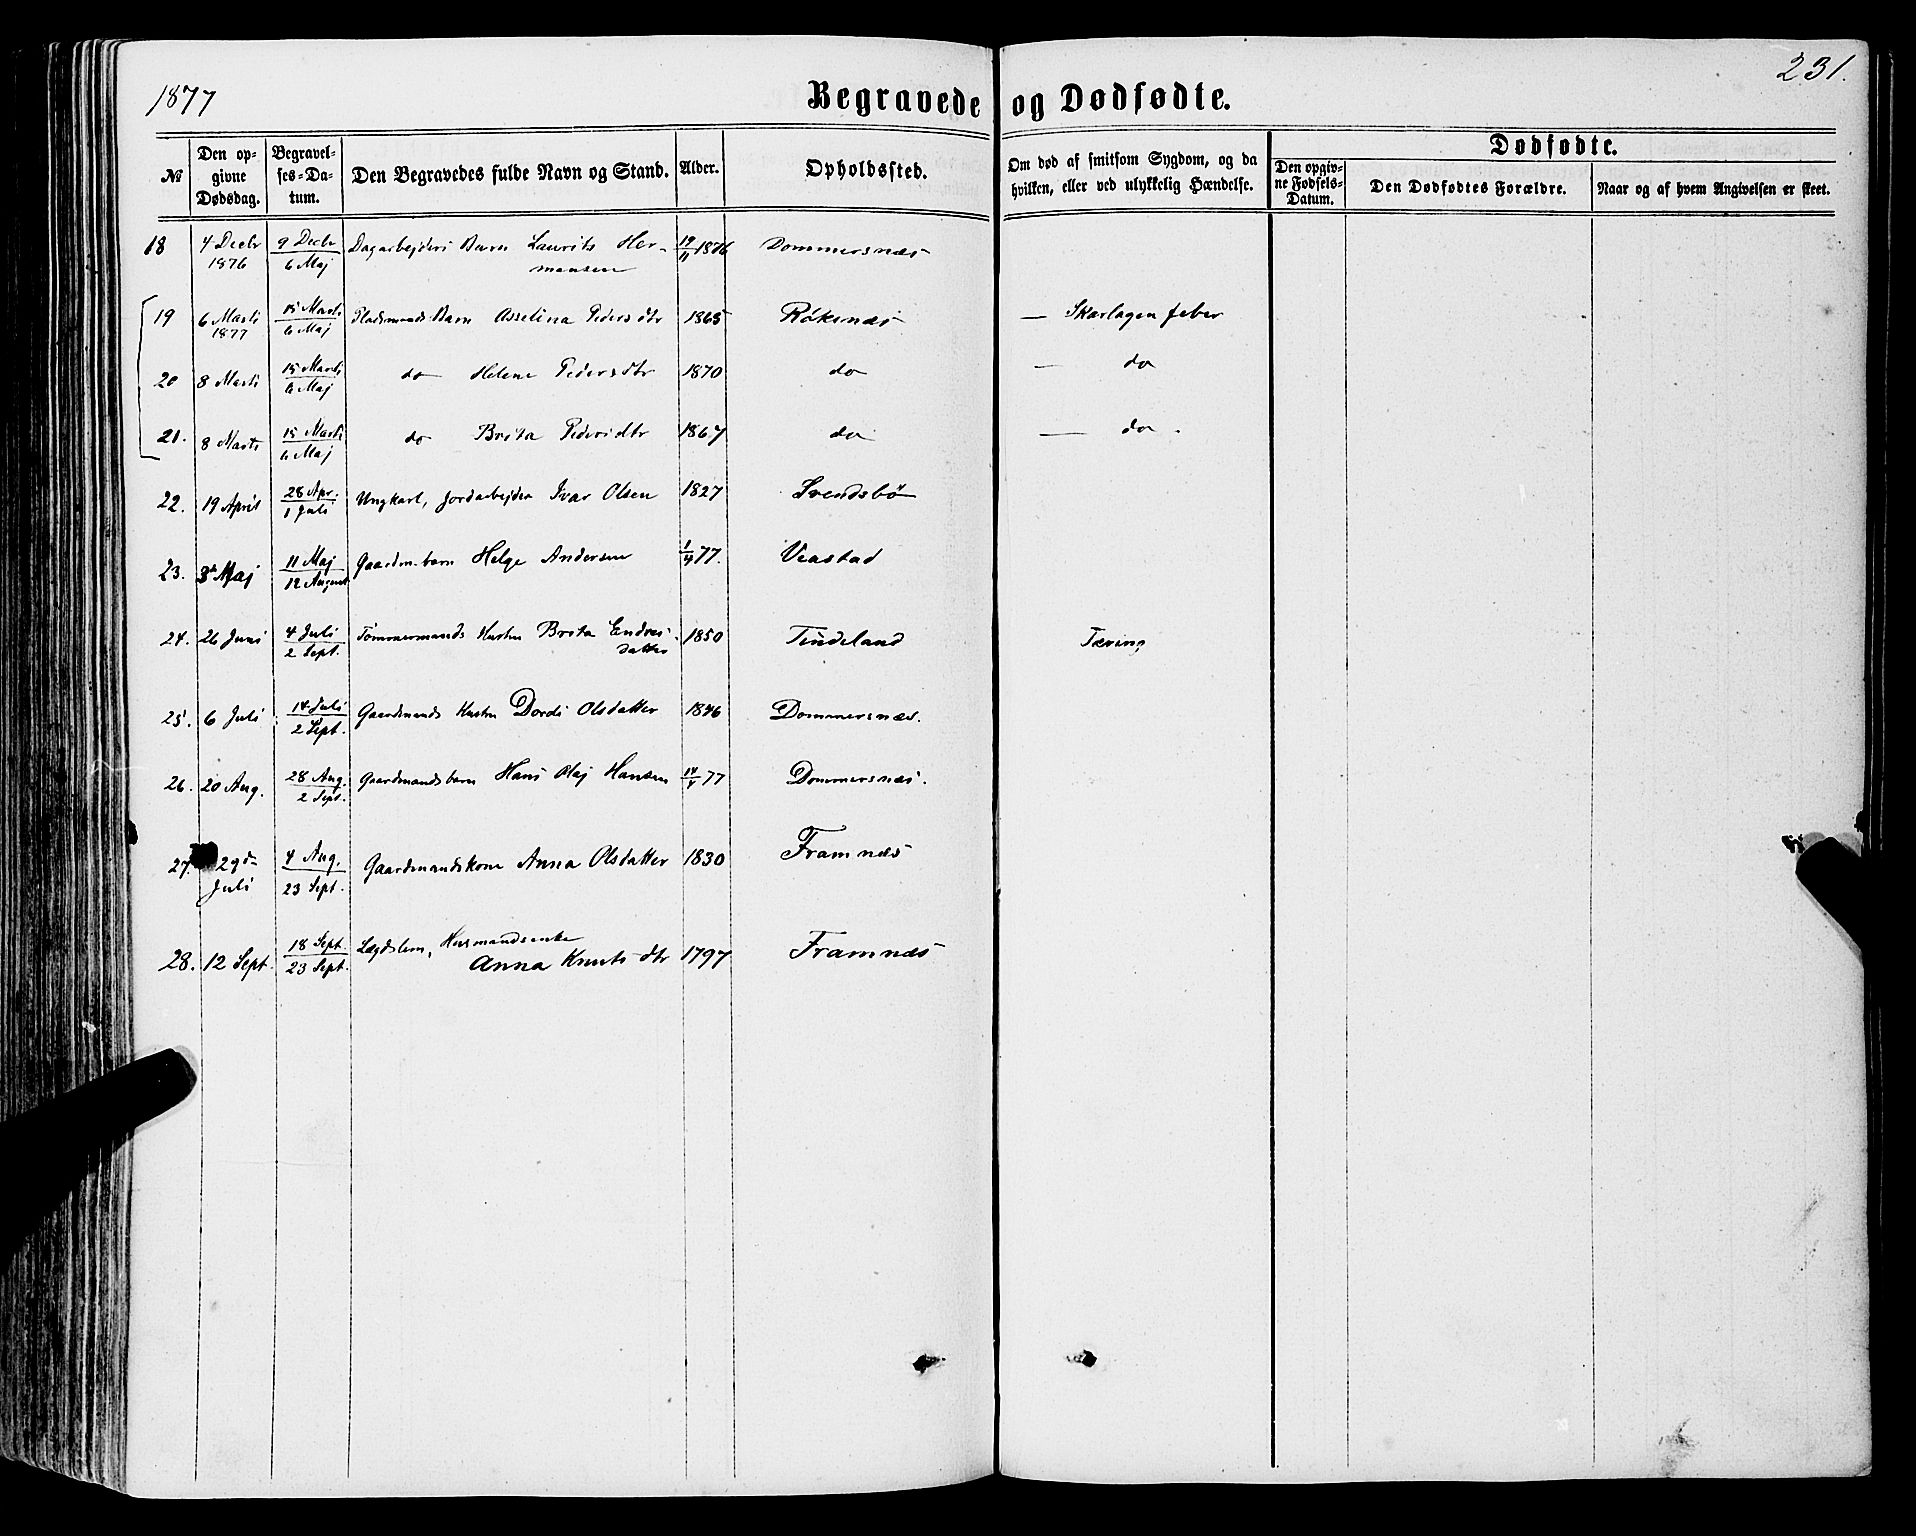 1877
Begravede og Dødfødte.
231.
№
Den opgivne Dødsdag.
Begravelses-Datum.
Den Begravedes fulde Navn og Stand.
Alder.
Opholdssted.
Om død af smitsom Sygdom, og da hvilken, eller ved ulykkelig Hændelse.
Dødfødte.
Den opgivne Fødsels-Datum.
Den Dødfødtes Forældre.
Naar og af hvem Angivelsen er skeet.
18 4 Decbr 1876 9 Decbr / 6 Maj Dagarbejders Barn Laurits Hermansen 19/11 1876 Dommersnæs
19 6 Marts 1877 15 Marts / 6 Maj Pladsmands Barn Asselina Pedersdtr 1865 Røksnæs — Skarlagenfeber
20 8 Marts 15 Marts / 6 Maj do Helene Pedersdtr 1870 do — do
21. 8 Marts 15 Marts / 6 Maj do Brita Pedersdtr 1867 do — do.
22. 19 April 28 Apr. / 1 Juli Ungkarl, Jordarbejder Ivar Olsen 1827 Svendsbø
23. Maj 11 Maj / 12 August Gaardm. barn Helge Andersen 1/4 77. Veastad
24. 26 Juni 4 Juli / 2 Sept. Tømmermands Hustru Brita Endresdatter 1850 Tindeland Tæring
25. 6 Juli 14 Juli / 2 Sept. Gaardmands Hustru Dordi Olsdatter 1846 Dommersnæs.
26. 20 Aug. 28 Aug. / 2 Sept. Gaardmandsbarn Hans Olaj Hansen 14/4 77 Dommersnæs.
27. 29d Juli 4 Aug. / 23 Sept. Gaardmandskone Anna Olsdatter 1830 Framnæs
28. 12 Sept. 18 Sept. / 23 Sept. Lægdslem, Husmandsenke Anna Knutsdtr 1797 Framnæs